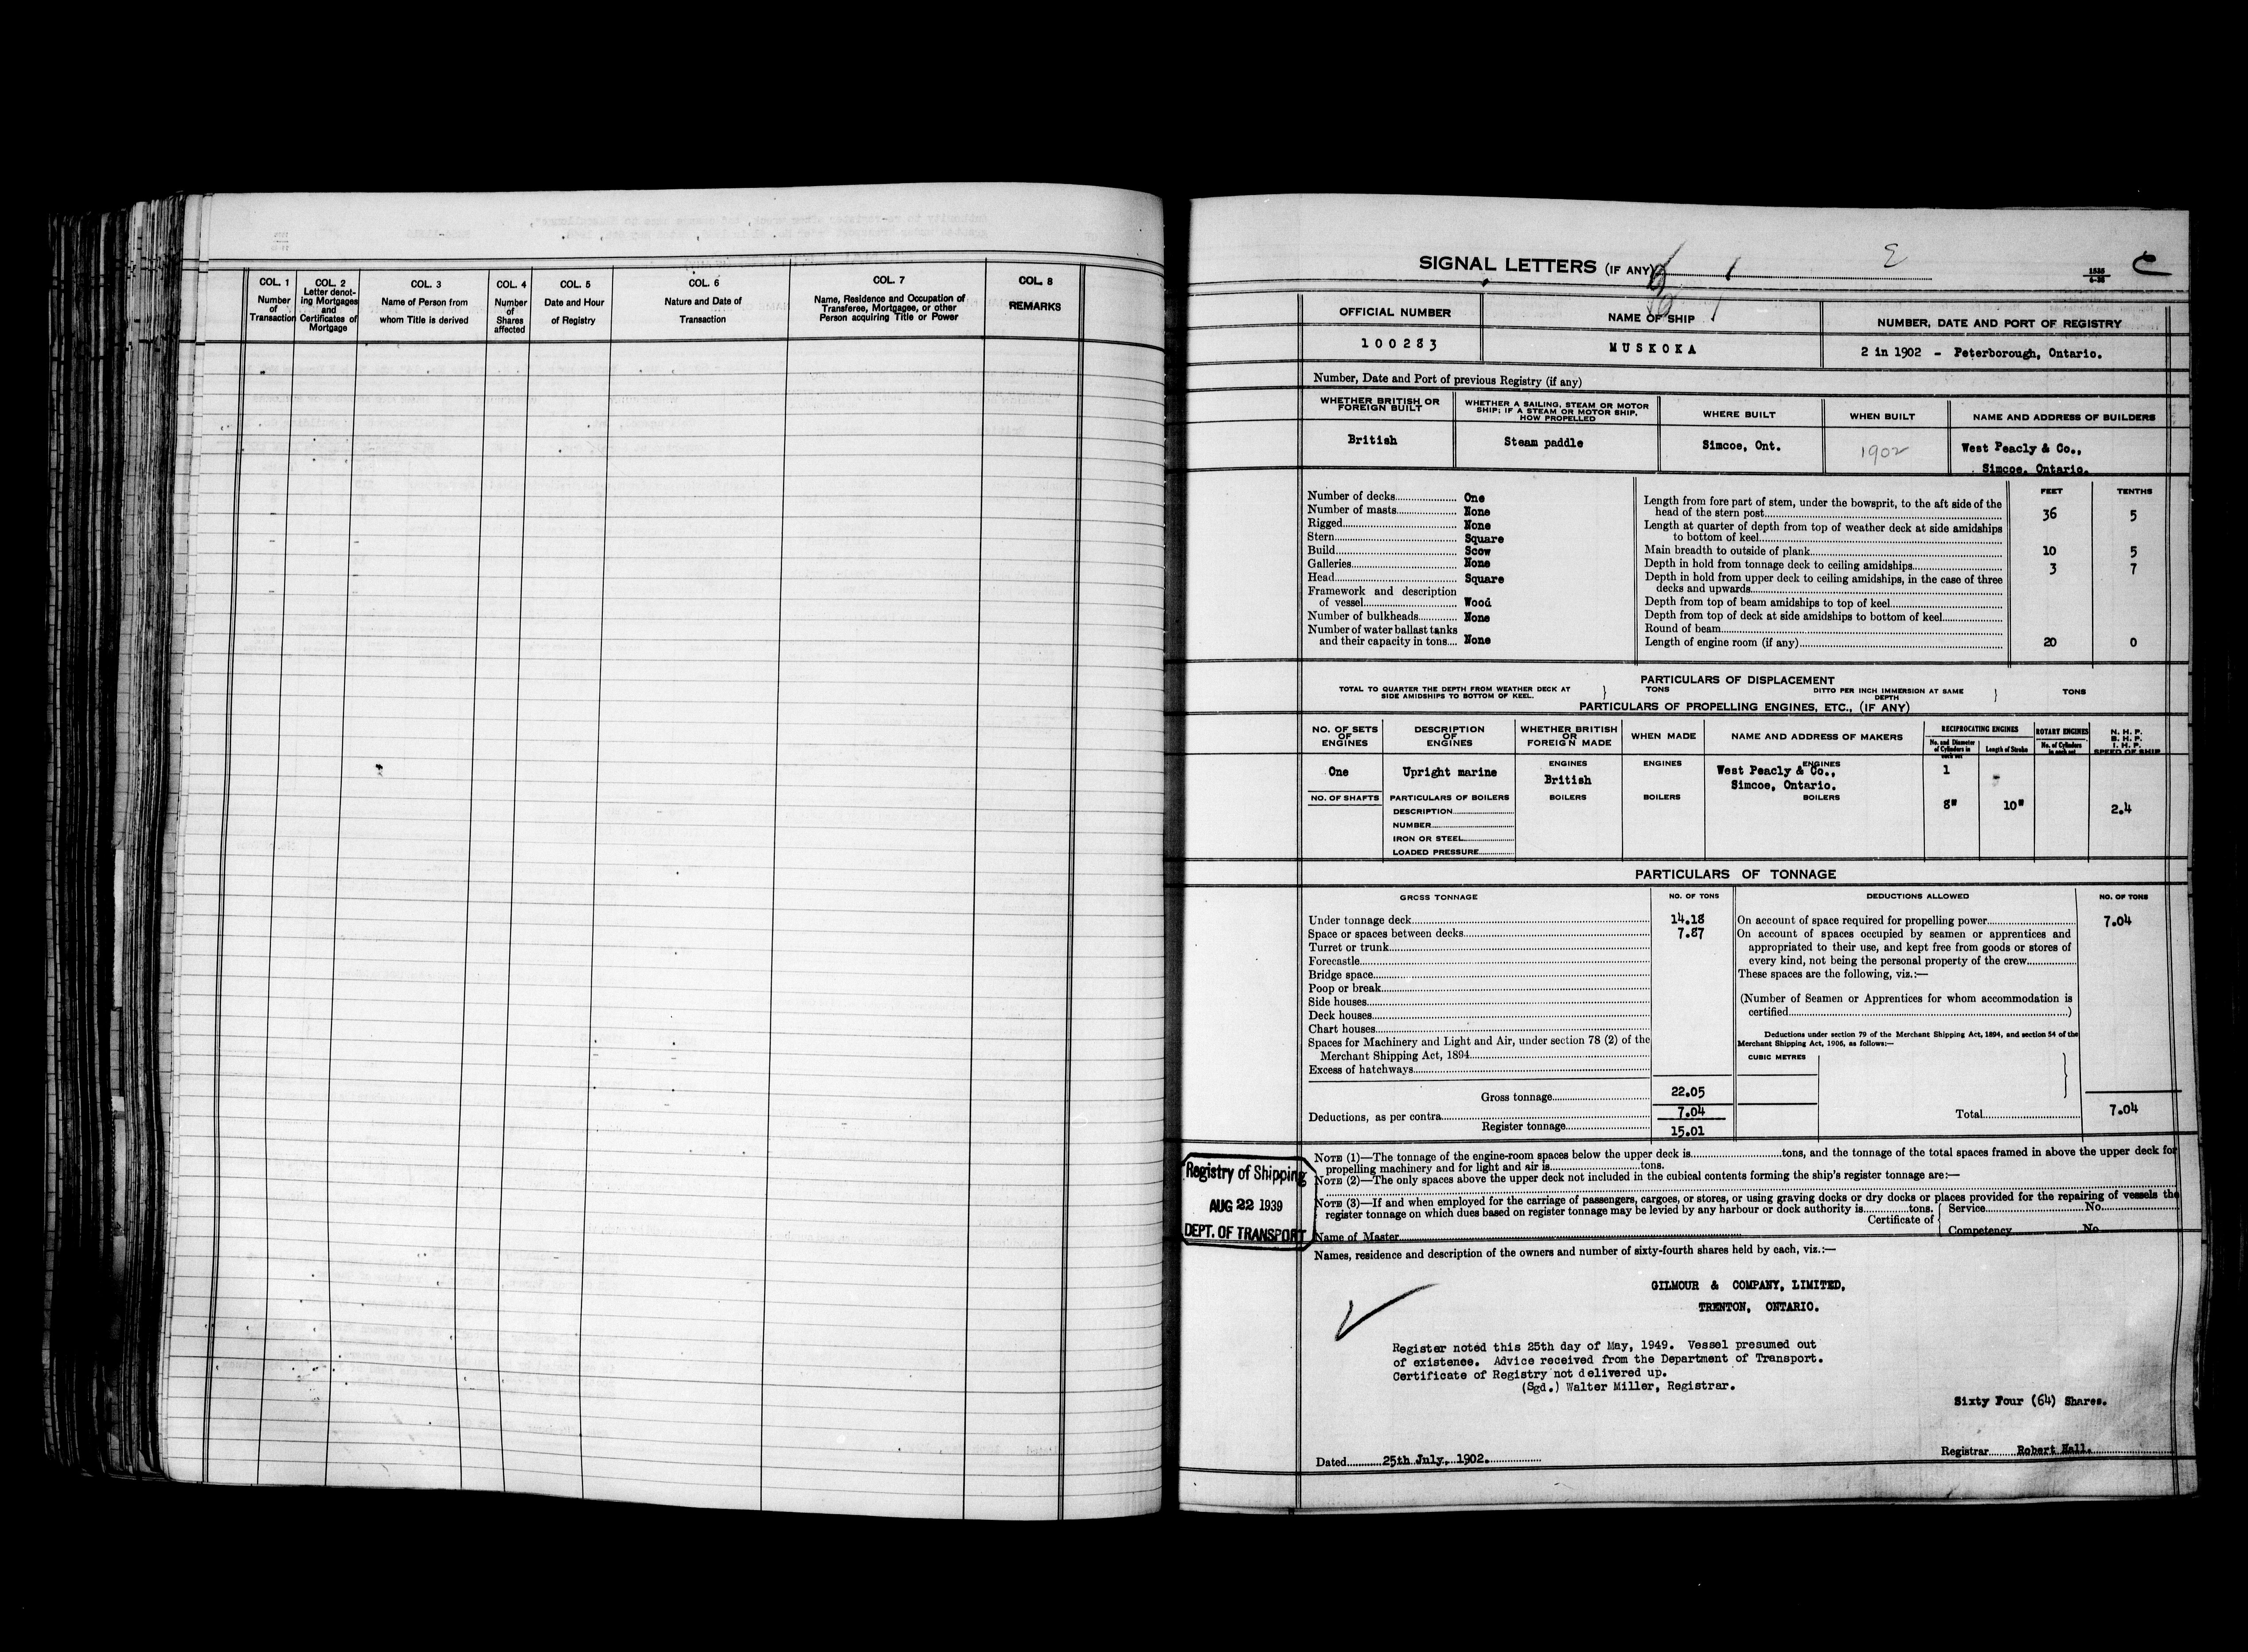 COL. 1
Number
of
Transaction
COL. 2
Letter denot-
ing Mortgages
and
Certificates of
Mortgage
COL. 3
Name of Person from
whom Title is derived
COL. 4
Number
of
Shares
affected
COL. 5
Date and Hour
of Registry
COL. 6
Nature and Date of
Transaction
COL. 7
Name, Residence and Occupation of
Transferee, Mortgagee, or other
Person acquiring Title or Power
COL. 8
REMARKS
SIGNAL LETTERS (IF ANY)
OFFICIAL NUMBER
100283
NAME OF SHIP
MUSKOKA
NUMBER, DATE AND PORT OF REGISTRY
2 in 1902 - Peterborough, Ontario.
Number, Date and Port of previous Registry (if any)
WHETHER BRITISH OR
FOREIGN BUILT
British
WHETHER A SAILING, STEAM OR MOTOR
SHIP; IF A STEAM OR MOTOR SHIP,
HOW PROPELLED
Steam paddle
WHERE BUILT
Simcoe, Ont.
WHEN BUILT
1902
NAME AND ADDRESS OF BUILDERS
West Peacly & Co.,
Simcoe, Ontario.
Number of decks One
Number of masts None
Rigged None
Stern Square
Build Scow
Galleries None
Head Square
Framework and description
of vessel Wood
Number of bulkheads None
Number of water ballast tanks
and their capacity in tons None
FEET TENTHS
Length from fore part of stem, under the bowsprit, to the aft side of the
head of the stern post 36 5
Length at quarter of depth from top of weather deck at side amidships
to bottom of keel
Main breadth to outside of plank 10 5
Depth in hold from tonnage deck to ceiling amidships 3 7
Depth in hold from upper deck to ceiling amidships, in the case of three
decks and upwards
Depth from top of beam amidships to top of keel
Depth from top of deck at side amidships to bottom of keel
Round of beam
Length of engine room (if any) 20 0
PARTICULARS OF DISPLACEMENT
TOTAL TO QUARTER THE DEPTH FROM WEATHER DECK AT
SIDE AMIDSHIPS TO BOTTOM OF KEEL.
TONS
DITTO PER INCH IMMERSION AT SAME
DEPTH
TONS
PARTICULARS OF PROPELLING ENGINES, ETC., (IF ANY)
NO. OF SETS
OF
ENGINES
DESCRIPTION
OF
ENGINES
WHETHER BRITISH
OR
FOREIGN MADE
WHEN MADE
NAME AND ADDRESS OF MAKERS
RECIPROCATING ENGINES
No. and Diameter
of Cylinders in
each set
Length of Stroke
ROTARY ENGINES
No. of Cylinders
in each set
N. H. P.
B. H. P.
I. H. P.
SPEED OF SHIP
One
Upright marine
ENGINES
British
ENGINES
ENGINES
West Peacly & Co.,
Simcoe, Ontario.
1
NO. OF SHAFTS
PARTICULARS OF BOILERS
BOILERS
BOILERS
BOILERS
8" 10" 2.4
DESCRIPTION
NUMBER
IRON OR STEEL
LOADED PRESSURE
PARTICULARS OF TONNAGE
GROSS TONNAGE NO. OF TONS
Under tonnage deck 14.18
Space or spaces between decks 7.87
Turret or trunk
Forecastle
Bridge space
Poop or break
Side houses
Deck houses
Chart houses
Spaces for Machinery and Light and Air, under section 78 (2) of the
Merchant Shipping Act, 1894
Excess of hatchways
Gross tonnage 22.05
Deductions, as per contra 7.04
Register tonnage 15.01
DEDUCTIONS ALLOWED NO. OF TONS
On account of space required for propelling power 7.04
On account of spaces occupied by seamen or apprentices and
appropriated to their use, and kept free from goods or stores of
every kind, not being the personal property of the crew
These spaces are the following, viz.:—
(Number of Seamen or Apprentices for whom accommodation is
certified)
Deductions under section 79 of the Merchant Shipping Act, 1894, and section 54 of the
Merchant Shipping Act, 1906, as follows:—
CUBIC METRES
Total 7.04
NOTE (1)—The tonnage of the engine-room spaces below the upper deck is tons, and the tonnage of the total spaces framed in above the upper deck for
propelling machinery and for light and air is tons.
NOTE (2)—The only spaces above the upper deck not included in the cubical contents forming the ship's register tonnage are:—
NOTE (3)—If and when employed for the carriage of passengers, cargoes, or stores, or using graving docks or dry docks or places provided for the repairing of vessels the
register tonnage on which dues based on register tonnage may be levied by any harbour or dock authority is tons.
Certificate of
Service No.
Competency No.
Name of Master
Registry of Shipping
AUG 22 1939
DEPT. OF TRANSPORT
Names, residence and description of the owners and number of sixty-fourth shares held by each, viz.:—
GILMOUR & COMPANY, LIMITED,
TRENTON, ONTARIO.
Register noted this 25th day of May, 1949. Vessel presumed out
of existence. Advice received from the Department of Transport.
Certificate of Registry not delivered up.
(Sgd.) Walter Miller, Registrar.
Sixty Four (64) Shares.
Dated 25th July, 1902.
Registrar Robert Hall.